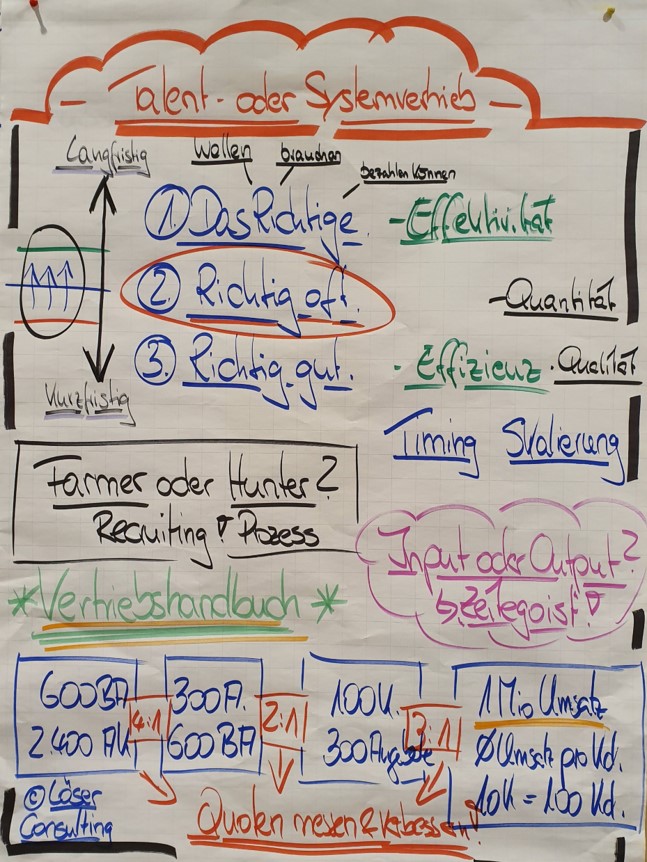 - Talent- oder Systemvertrieb -
Langfristig
Wollen brauchen bezahlen können
① Das Richtige. - Effektivität
②. Richtig oft. - Quantität
③. Richtig gut. - Effizienz · Qualität
Kurzfristig
Timing Skalierung
Farmer oder Hunter?
Recruiting! Prozess
Input oder Output?
↳ Zeitegoist!
* Vertriebshandbuch *
600 BA
2.400 AV
4:1
300 A.
600 BA
2:1
100 K.
300 Angebote
3:1
1 Mio Umsatz
Ø Umsatz pro Kd.
10K = 100 Kd.
© Löser
Consulting
Quoten messen & verbessern!